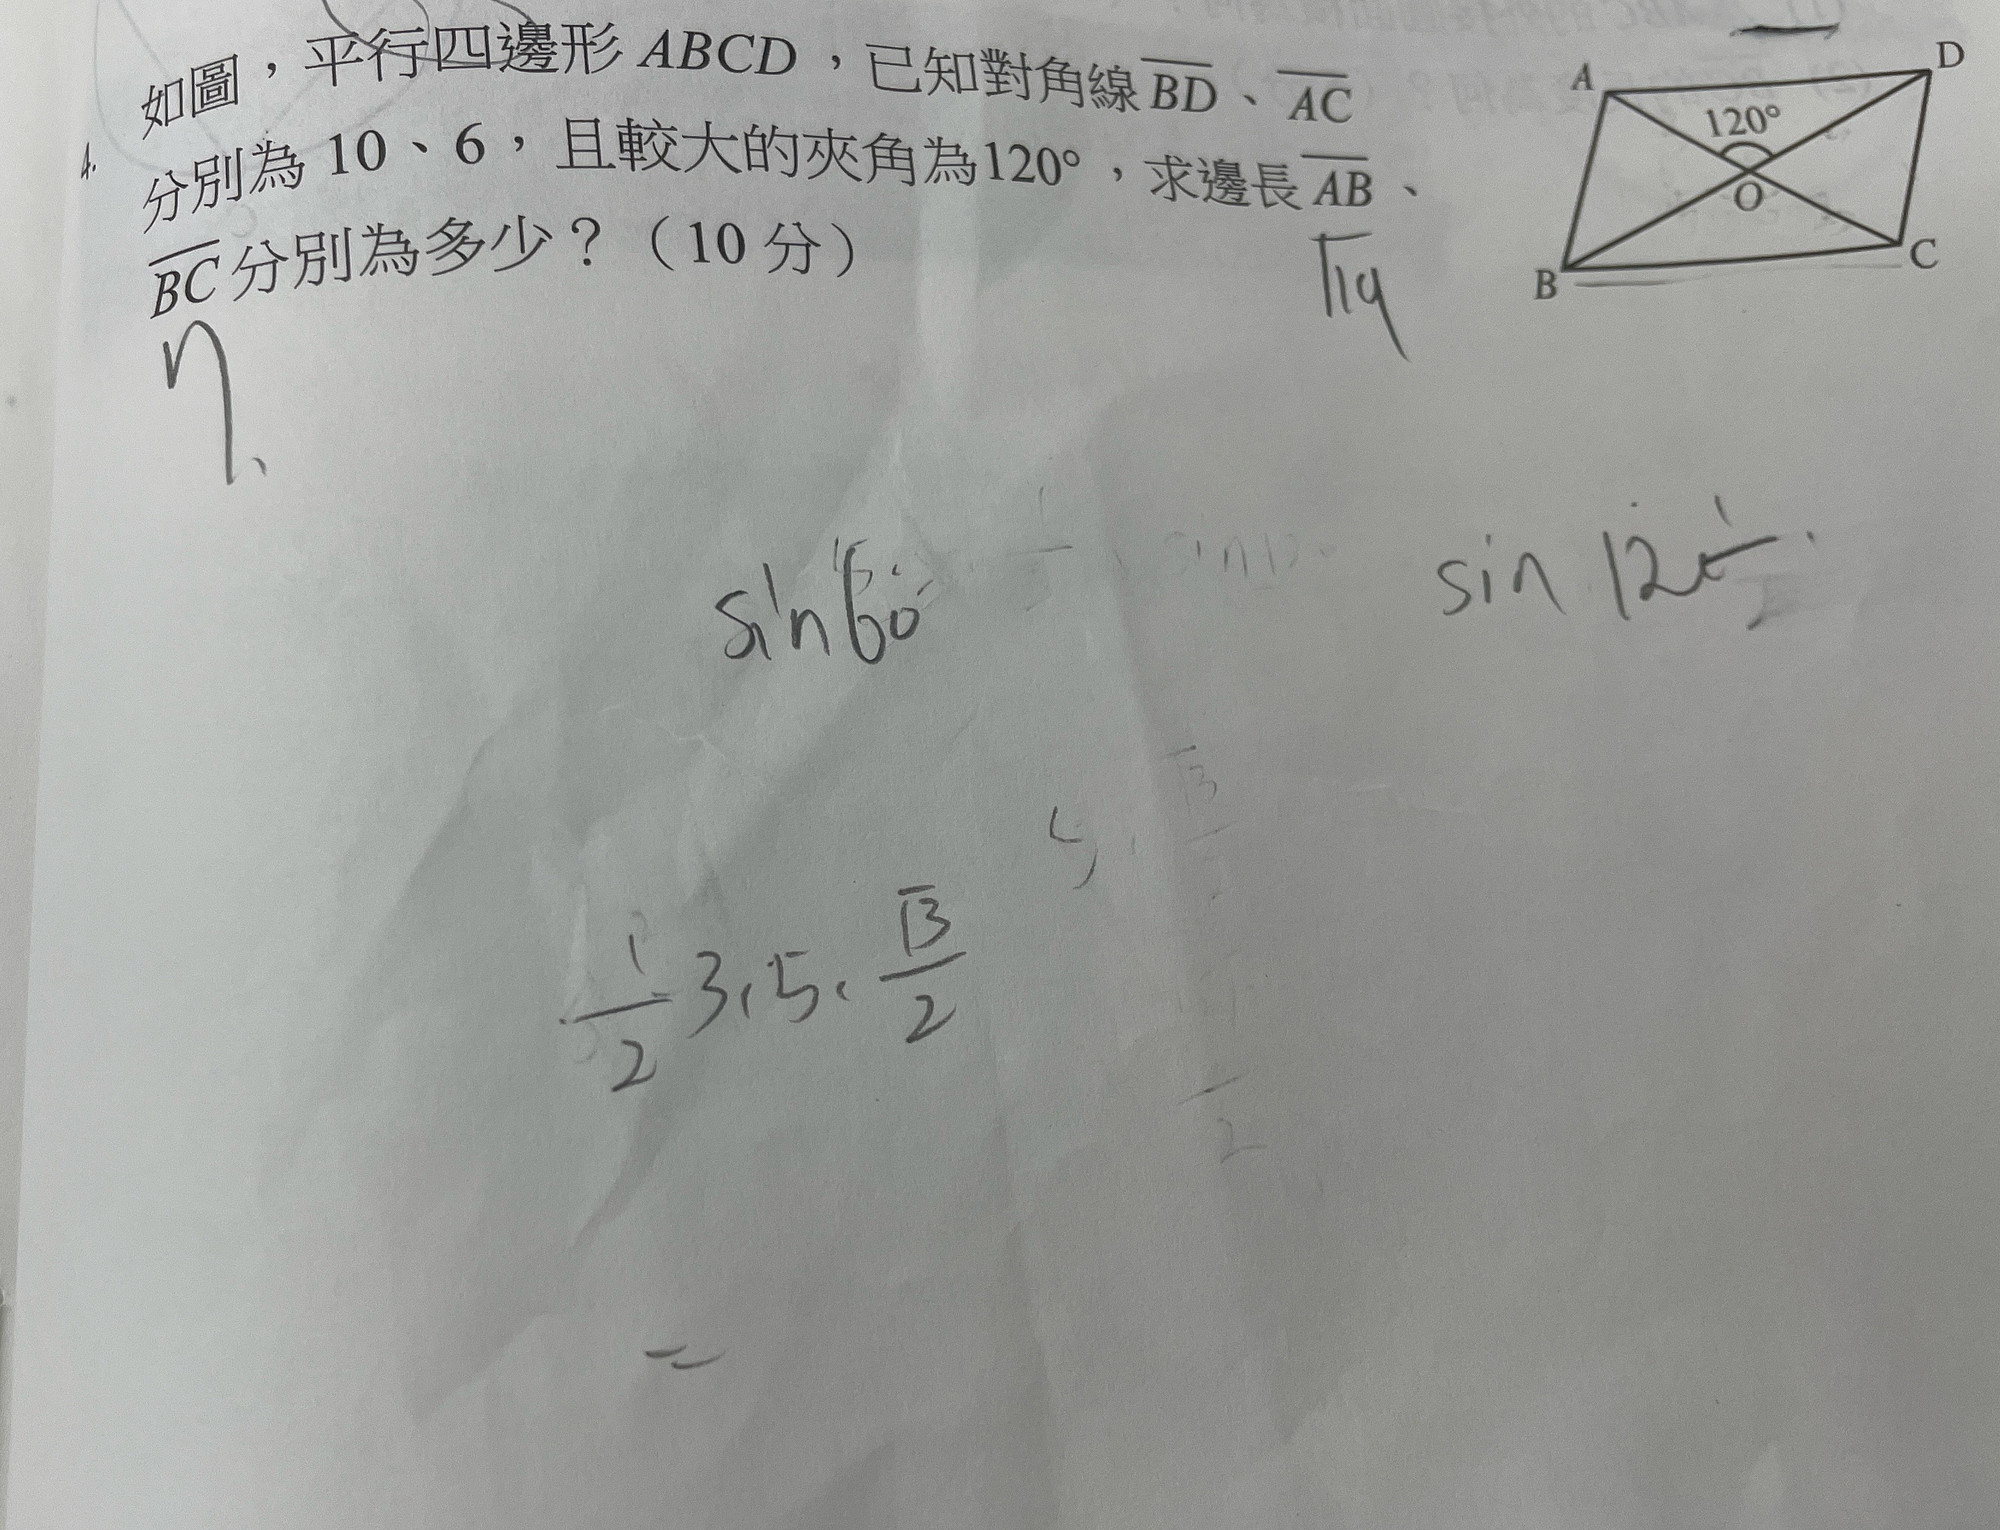 4. 如圖，平行四邊形 ABCD，已知對角線 BD、AC
分別為 10、6，且較大的夾角為120°，求邊長 AB、
BC 分別為多少？（10 分）
A
D
120°
O
B
C
√19
7.
sin60
sin 12
1/2
1/2 3.5. √3/2
5.
√3
2
=